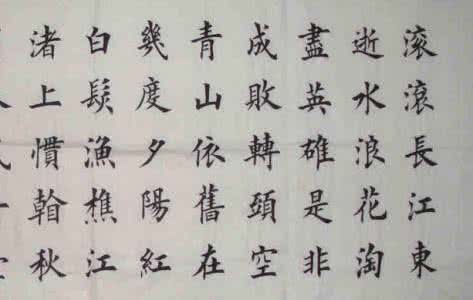 滚滚長江東
逝水浪花淘
盡英雄是非
成敗轉頭空
青山依舊在
幾度夕陽紅
白髮漁樵江
渚上慣翰秋